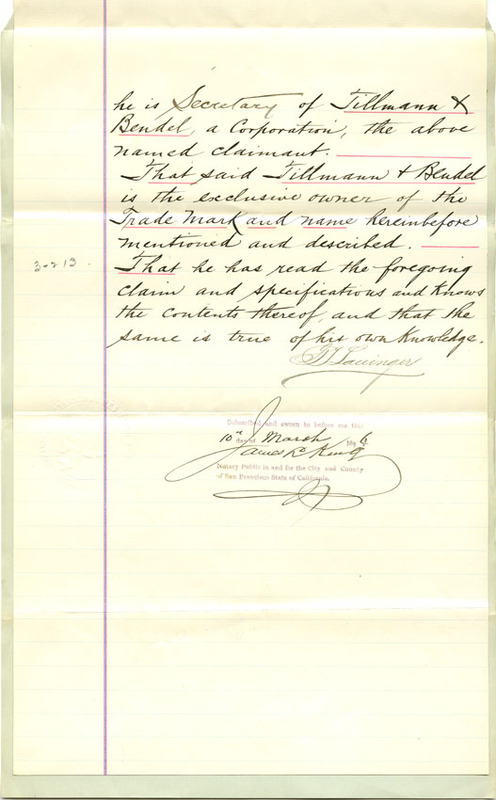 he is Secretary of Tillmann &
Bendel, a Corporation, the above
named claimant.
That said Tillmann & Bendel
is the exclusive owner of the
Trade Mark and name hereinbefore
mentioned and described.
3-213.
That he has read the foregoing
claim and specifications and knows
the contents thereof, and that the
same is true of his own knowledge.
Lauinger
Subscribed and sworn to before me this
10th day of March 189
James L. King
Notary Public in and for the City and County
of San Francisco State of California.